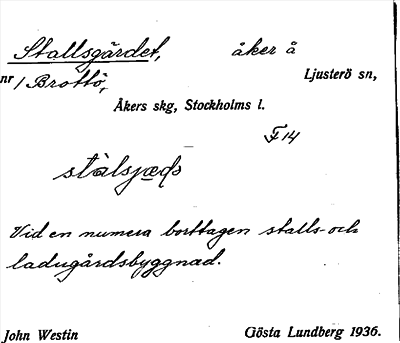 Stallsgärdet, åker å
nr 1 Brottö, Ljusterö sn,
Åkers skg, Stockholms l.
F 14
Vid en numera borttagen stalls- och
ladugårdsbyggnad.
John Westin Gösta Lundberg 1936.